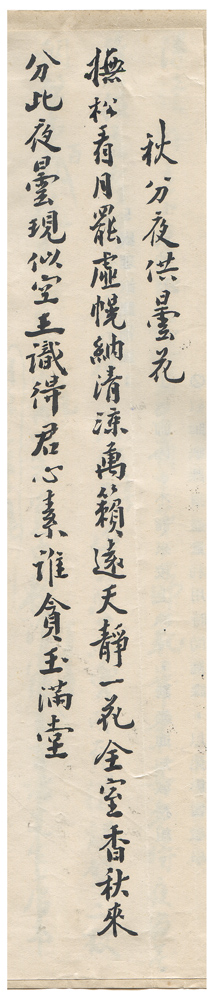 秋分夜供曇花
撫松看月罷虛幌納清涼萬籟遠天靜一花全室香秋來
分此夜曇現似空王識得君心素誰貪玉滿堂